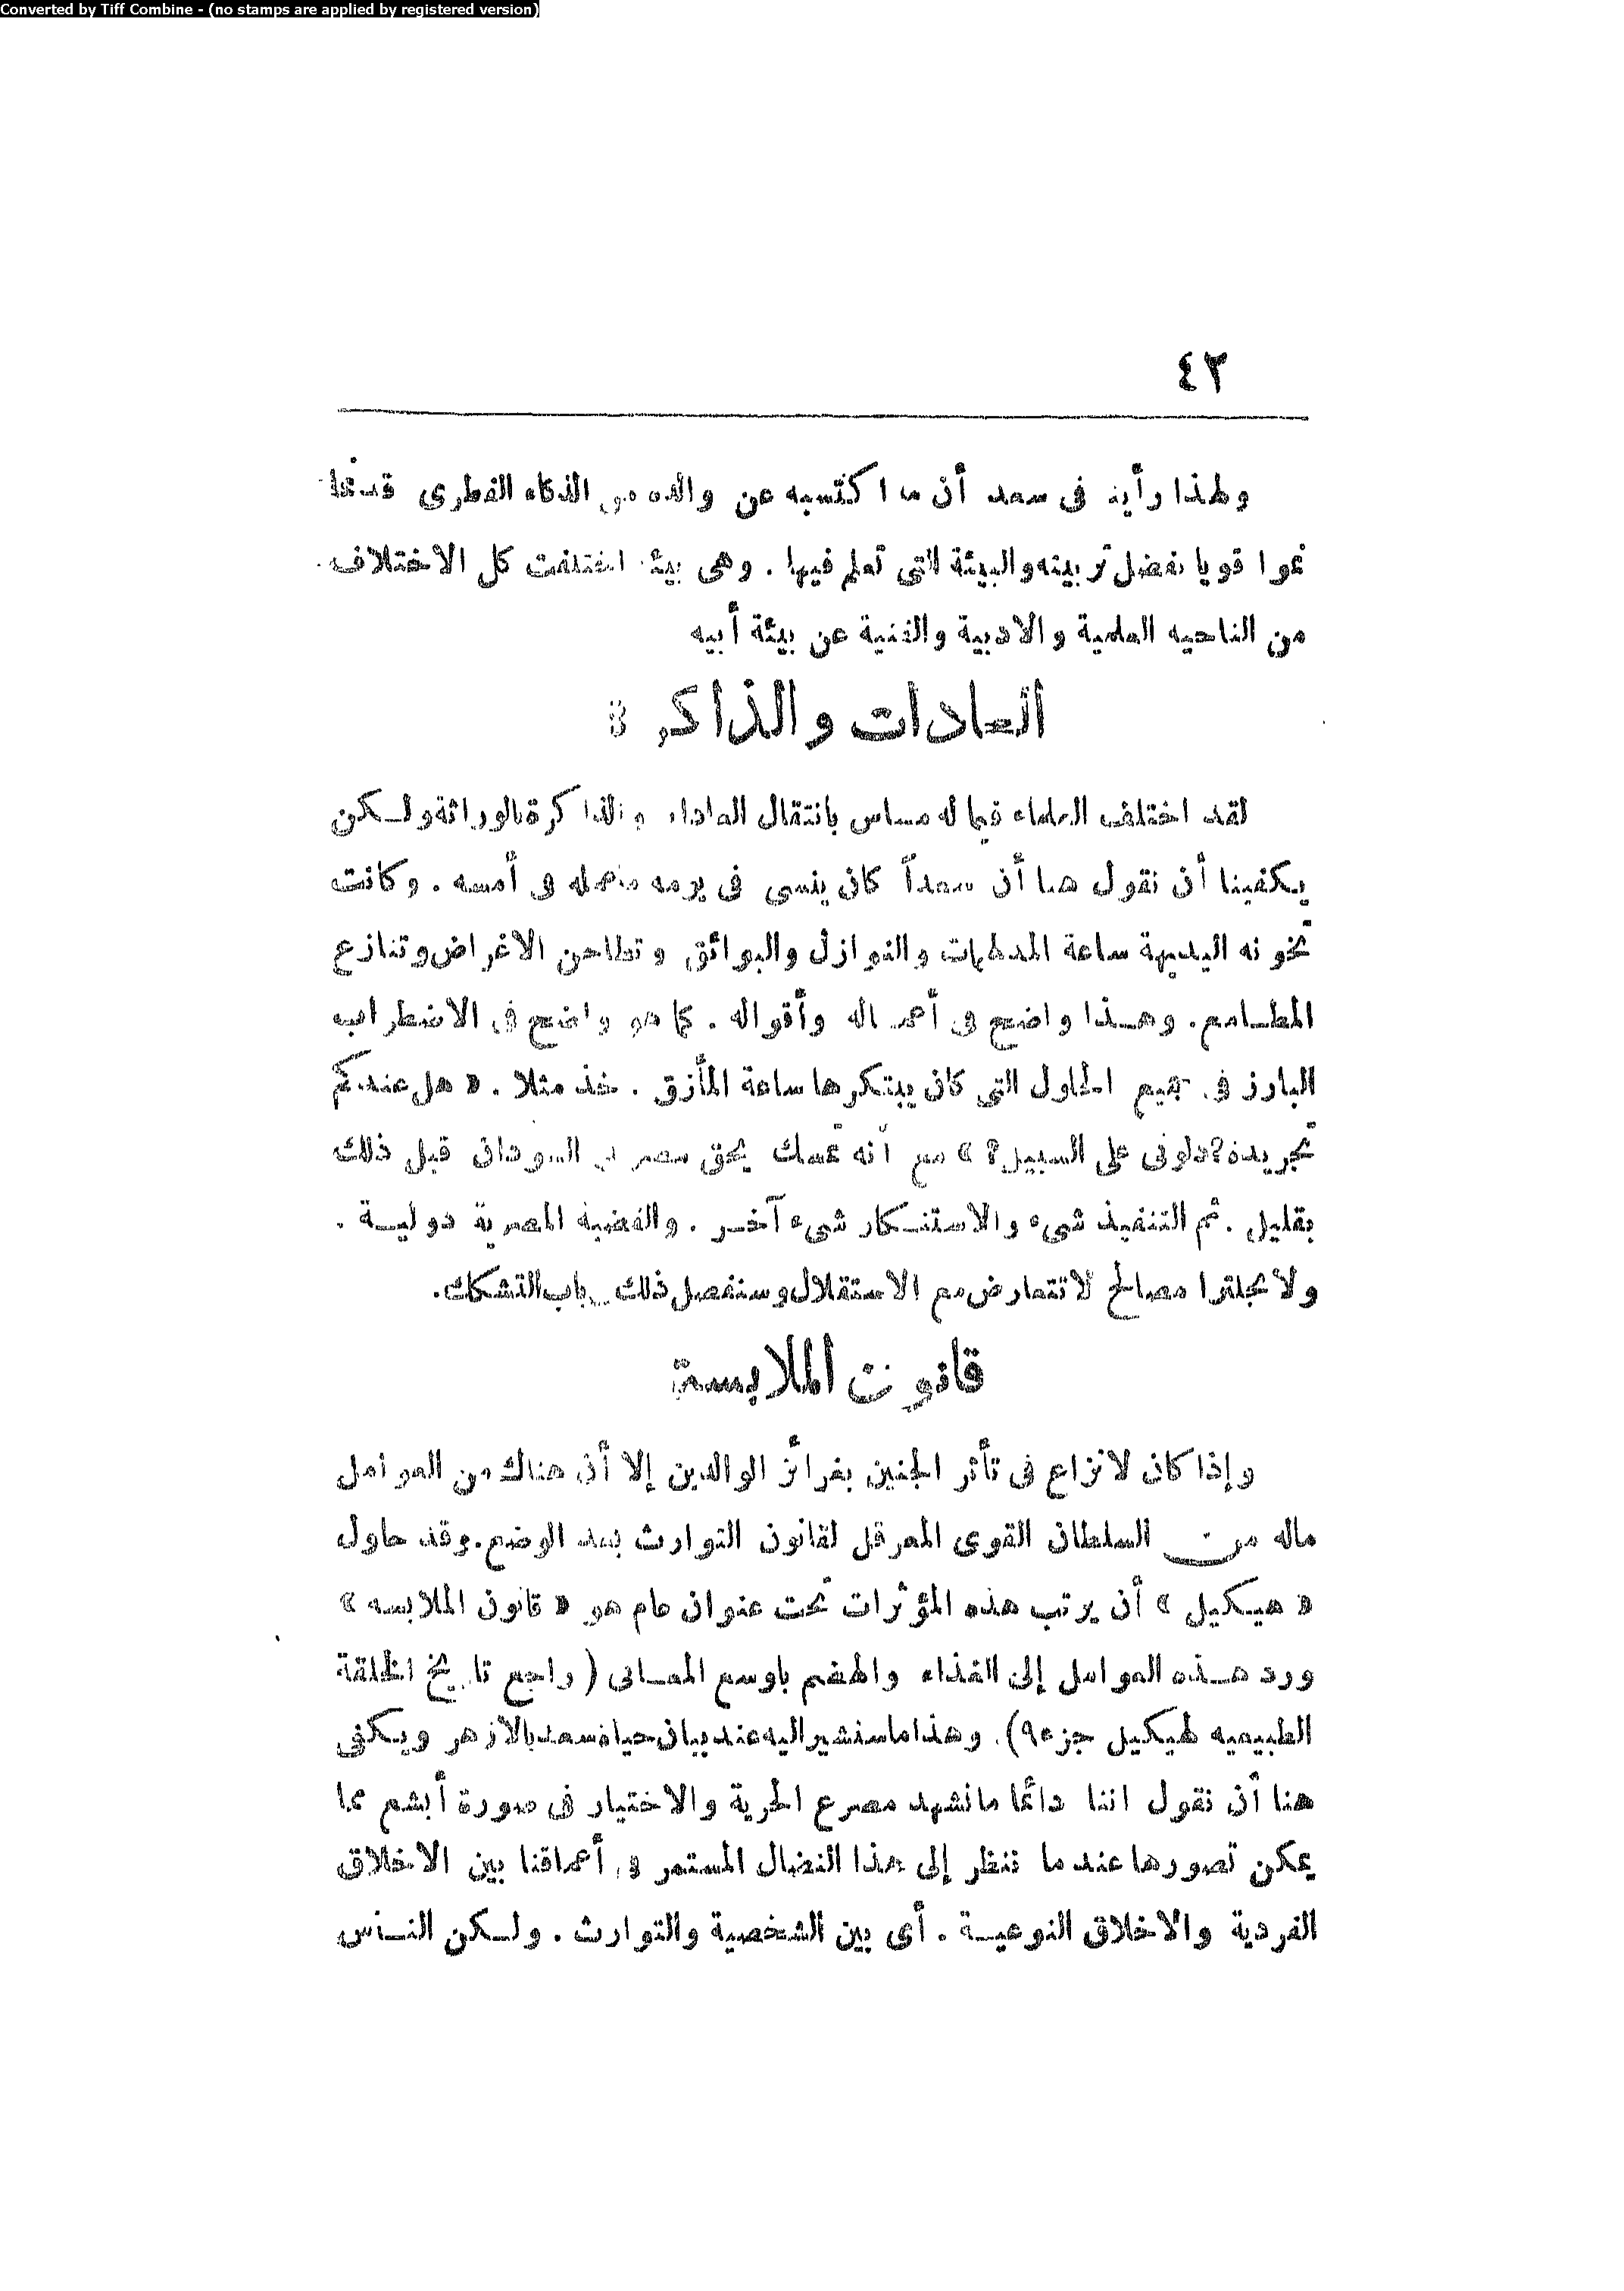 Converted by Tiff Combine - (no stamps are applied by registered version)
٤٢
ولهذا رأينا فى سعد أن ما اكتسبه عن والده من الذكاء الفطرى قد نما
نموا قويا بفضل تربيته والبيئة التى تعلم فيها . وهى بيئة اختلفت كل الاختلاف
من الناحيه العلمية والادبية والفنية عن بيئة أبيه
العادات والذاكرة
لقد اختلف العلماء فيما له مساس بانتقال العادات والذاكرة بالوراثة ولكن
يكفينا أن نقول هنا أن سعداً كان ينسى فى يومه ما عمله فى أمسه . وكانت
تخونه البديهة ساعة المدلهمات والنوازل والبوائق وتطاحن الاغراض وتنازع
المطامع . وهذا واضح فى أعماله وأقواله . كما هو واضح فى الاضطراب
البارز فى جميع الحلول التى كان يبتكرها ساعة المأزق . خذ مثلا . « هل عندكم
تجريدة؟ دلونى على السبيل؟ » مع أنه تمسك بحق مصر فى السودان قبل ذلك
بقليل . ثم التنفيذ شىء والاستنكار شىء آخر . والقضيه المصرية دولية .
ولانجلترا مصالح لا تتعارض مع الاستقلال وسنفصل ذلك باب التشكك .
قانون الملابسة
وإذا كان لانزاع فى تأثر الجنين بغرائز الوالدين إلا أن هناك من العوامل
ماله من السلطان القوى المعرقل لقانون التوارث بعد الوضع . وقد حاول
« هيكيل » أن يرتب هذه المؤثرات تحت عنوان عام هو « قانون الملابسه »
ورد هذه العوامل إلى الغذاء والهضم باوسع المعانى ( راجع تاريخ الخلقة
الطبيعيه لهيكيل جزء ٩) . وهذا ماسنشير اليه عند بيان حياة سعد بالازهر ويكفى
هنا أن نقول اننا دائما مانشهد مصرع الحرية والاختيار فى صورة أبشع مما
يمكن تصورها عند ما ننظر إلى هذا النضال المستمر فى أعماقنا بين الاخلاق
الفردية والاخلاق النوعية . أى بين الشخصية والتوارث . ولكن الناس